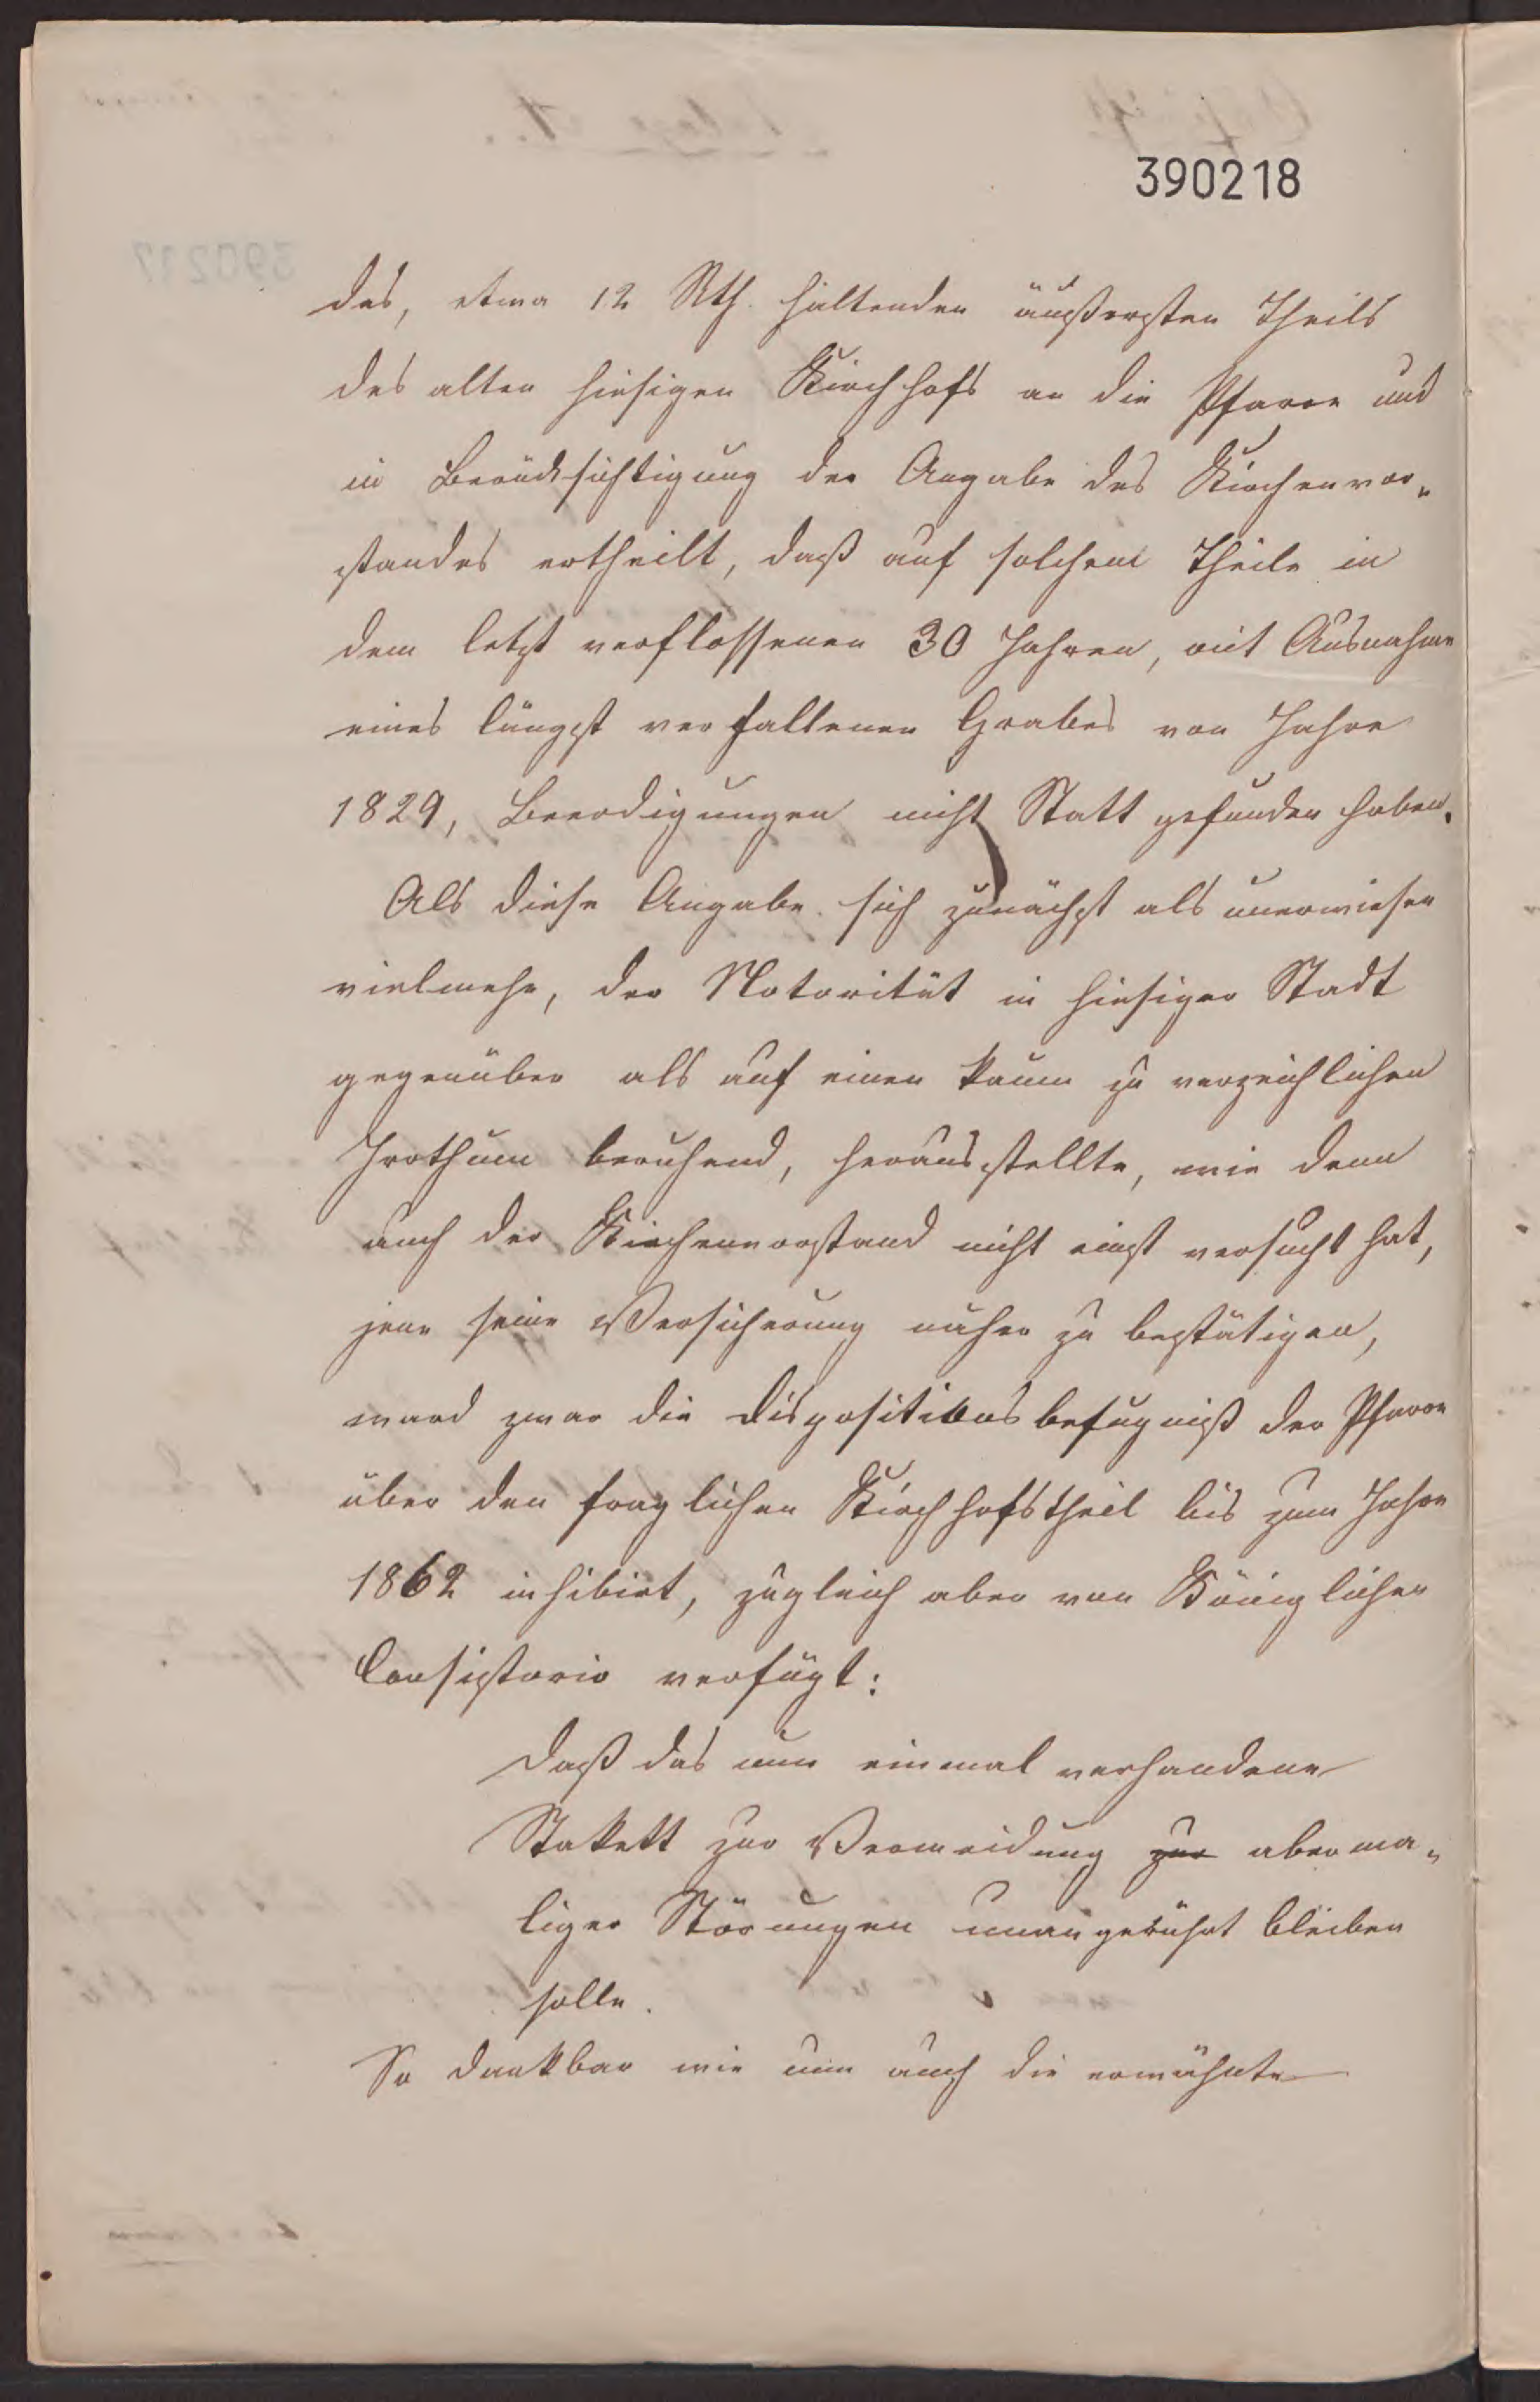 390218
des, etwa 12 Rth. haltenden äußersten Theils
des alten hiesigen Kirchhofs an die Pfarre und
in Berücksichtigung der Angabe des Kirchenvor-
standes ertheilt, daß auf solchem Theile in
dem letzt verflossenen 30 Jahren, mit Ausnahme
eines längst verfallenen Grabes von Jahre
1829, Beerdigungen nicht Statt gefunden haben.
Als diese Angabe sich zunächst als unerwiesen
vielmehr, der Notorität in hiesiger Stadt
gegenüber als auf einen kaum zu verzeihlichen
Irrthum beruhend, herausstellte, wie denn
auch der Kirchenvorstand nicht einst versucht hat,
jene seine Versicherung näher zu bestätigen,
ward zwar die Dispositionsbefugniß der Pfarre
über den fraglichen Kirchhofstheil bis zum Jahre
1862 inhibirt, zugleich aber von Königlichen
Consistorio verfügt:
daß das nun einmal vorhandene
Stakett zur Vermeidung zur aberma-
liger Störungen unangerührt bleiben
solle.
So dankbar wir nun auch die erwähnte